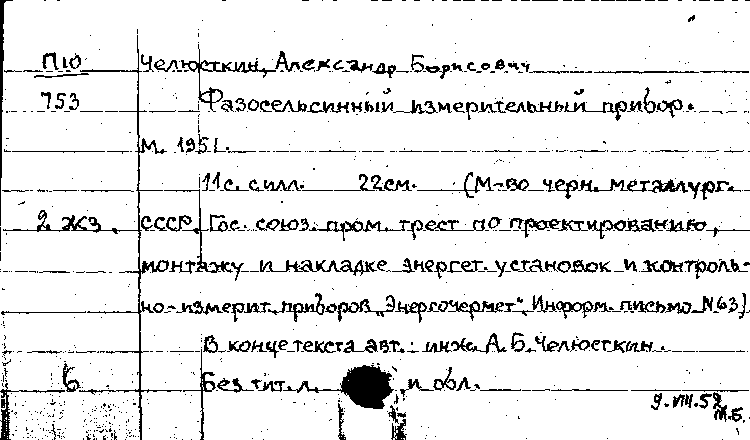 П10 Челюсткин, Александр Борисович
753 Фазосельсинный измерительный прибор.
М. 1951.
11с. с илл. 22см. (М-во черн. металлург.
2 экз. СССР. Гос. союз. пром. трест по проектированию,
монтажу и накладке энергет. установок и контроль-
но-измерит. приборов „Энергочермет“. Информ. письмо N63)
В конце текста авт.: инж. А. Б. Челюсткин.
Б Без тит. л. и обл.
9.VIII.52
М.Б.